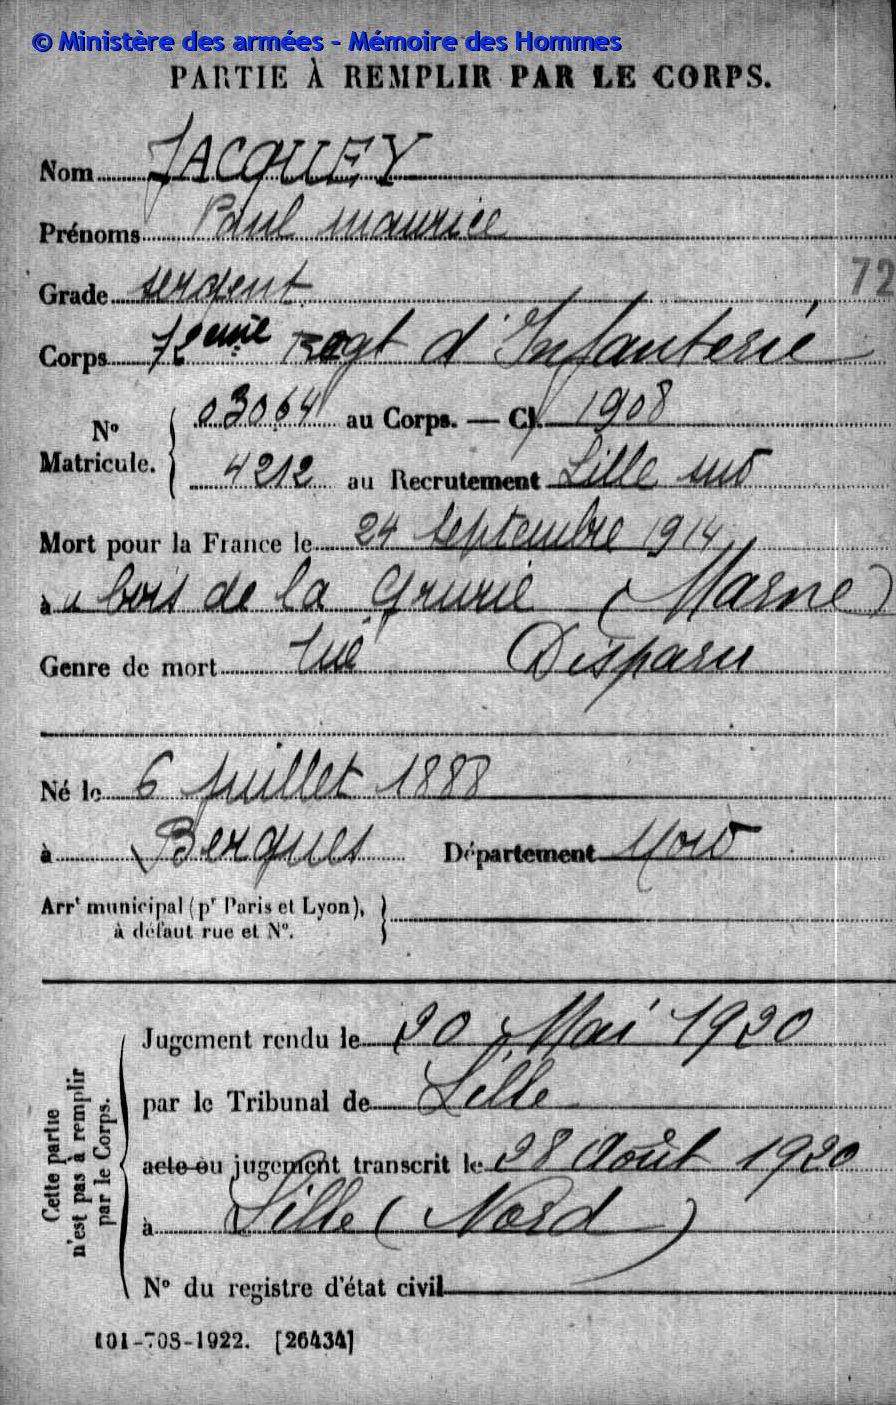 © Ministère des armées - Mémoire des Hommes
PARTIE À REMPLIR PAR LE CORPS.
Nom JACQUEY
Prénoms Paul Maurice
Grade sergent
72
Corps 72eme Regt d'Infanterie
N° Matricule. { 03064 au Corps. — Cl. 1908
4212 au Recrutement Lille sud
Mort pour la France le 24 Septembre 1914
à u bois de la Grurie (Marne)
Genre de mort tué Disparu
Né le 6 Juillet 1888
à Bergues Département Nord
Arrt municipal (pr Paris et Lyon), }
à défaut rue et N°.
Cette partie n'est pas à remplir par le Corps.
Jugement rendu le 20 Mai 1920
par le Tribunal de Lille
acte ou jugement transcrit le 28 Août 1920
à Lille (Nord)
N° du registre d'état civil
101-708-1922. [26434]